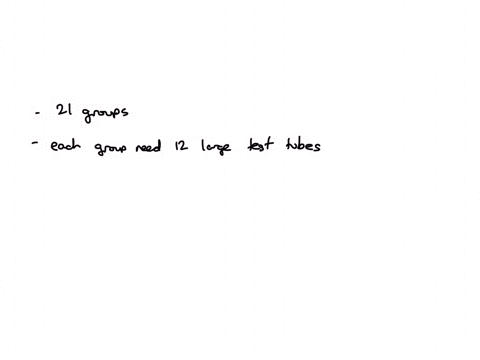 - 21 groups
- each group need 12 large test tubes